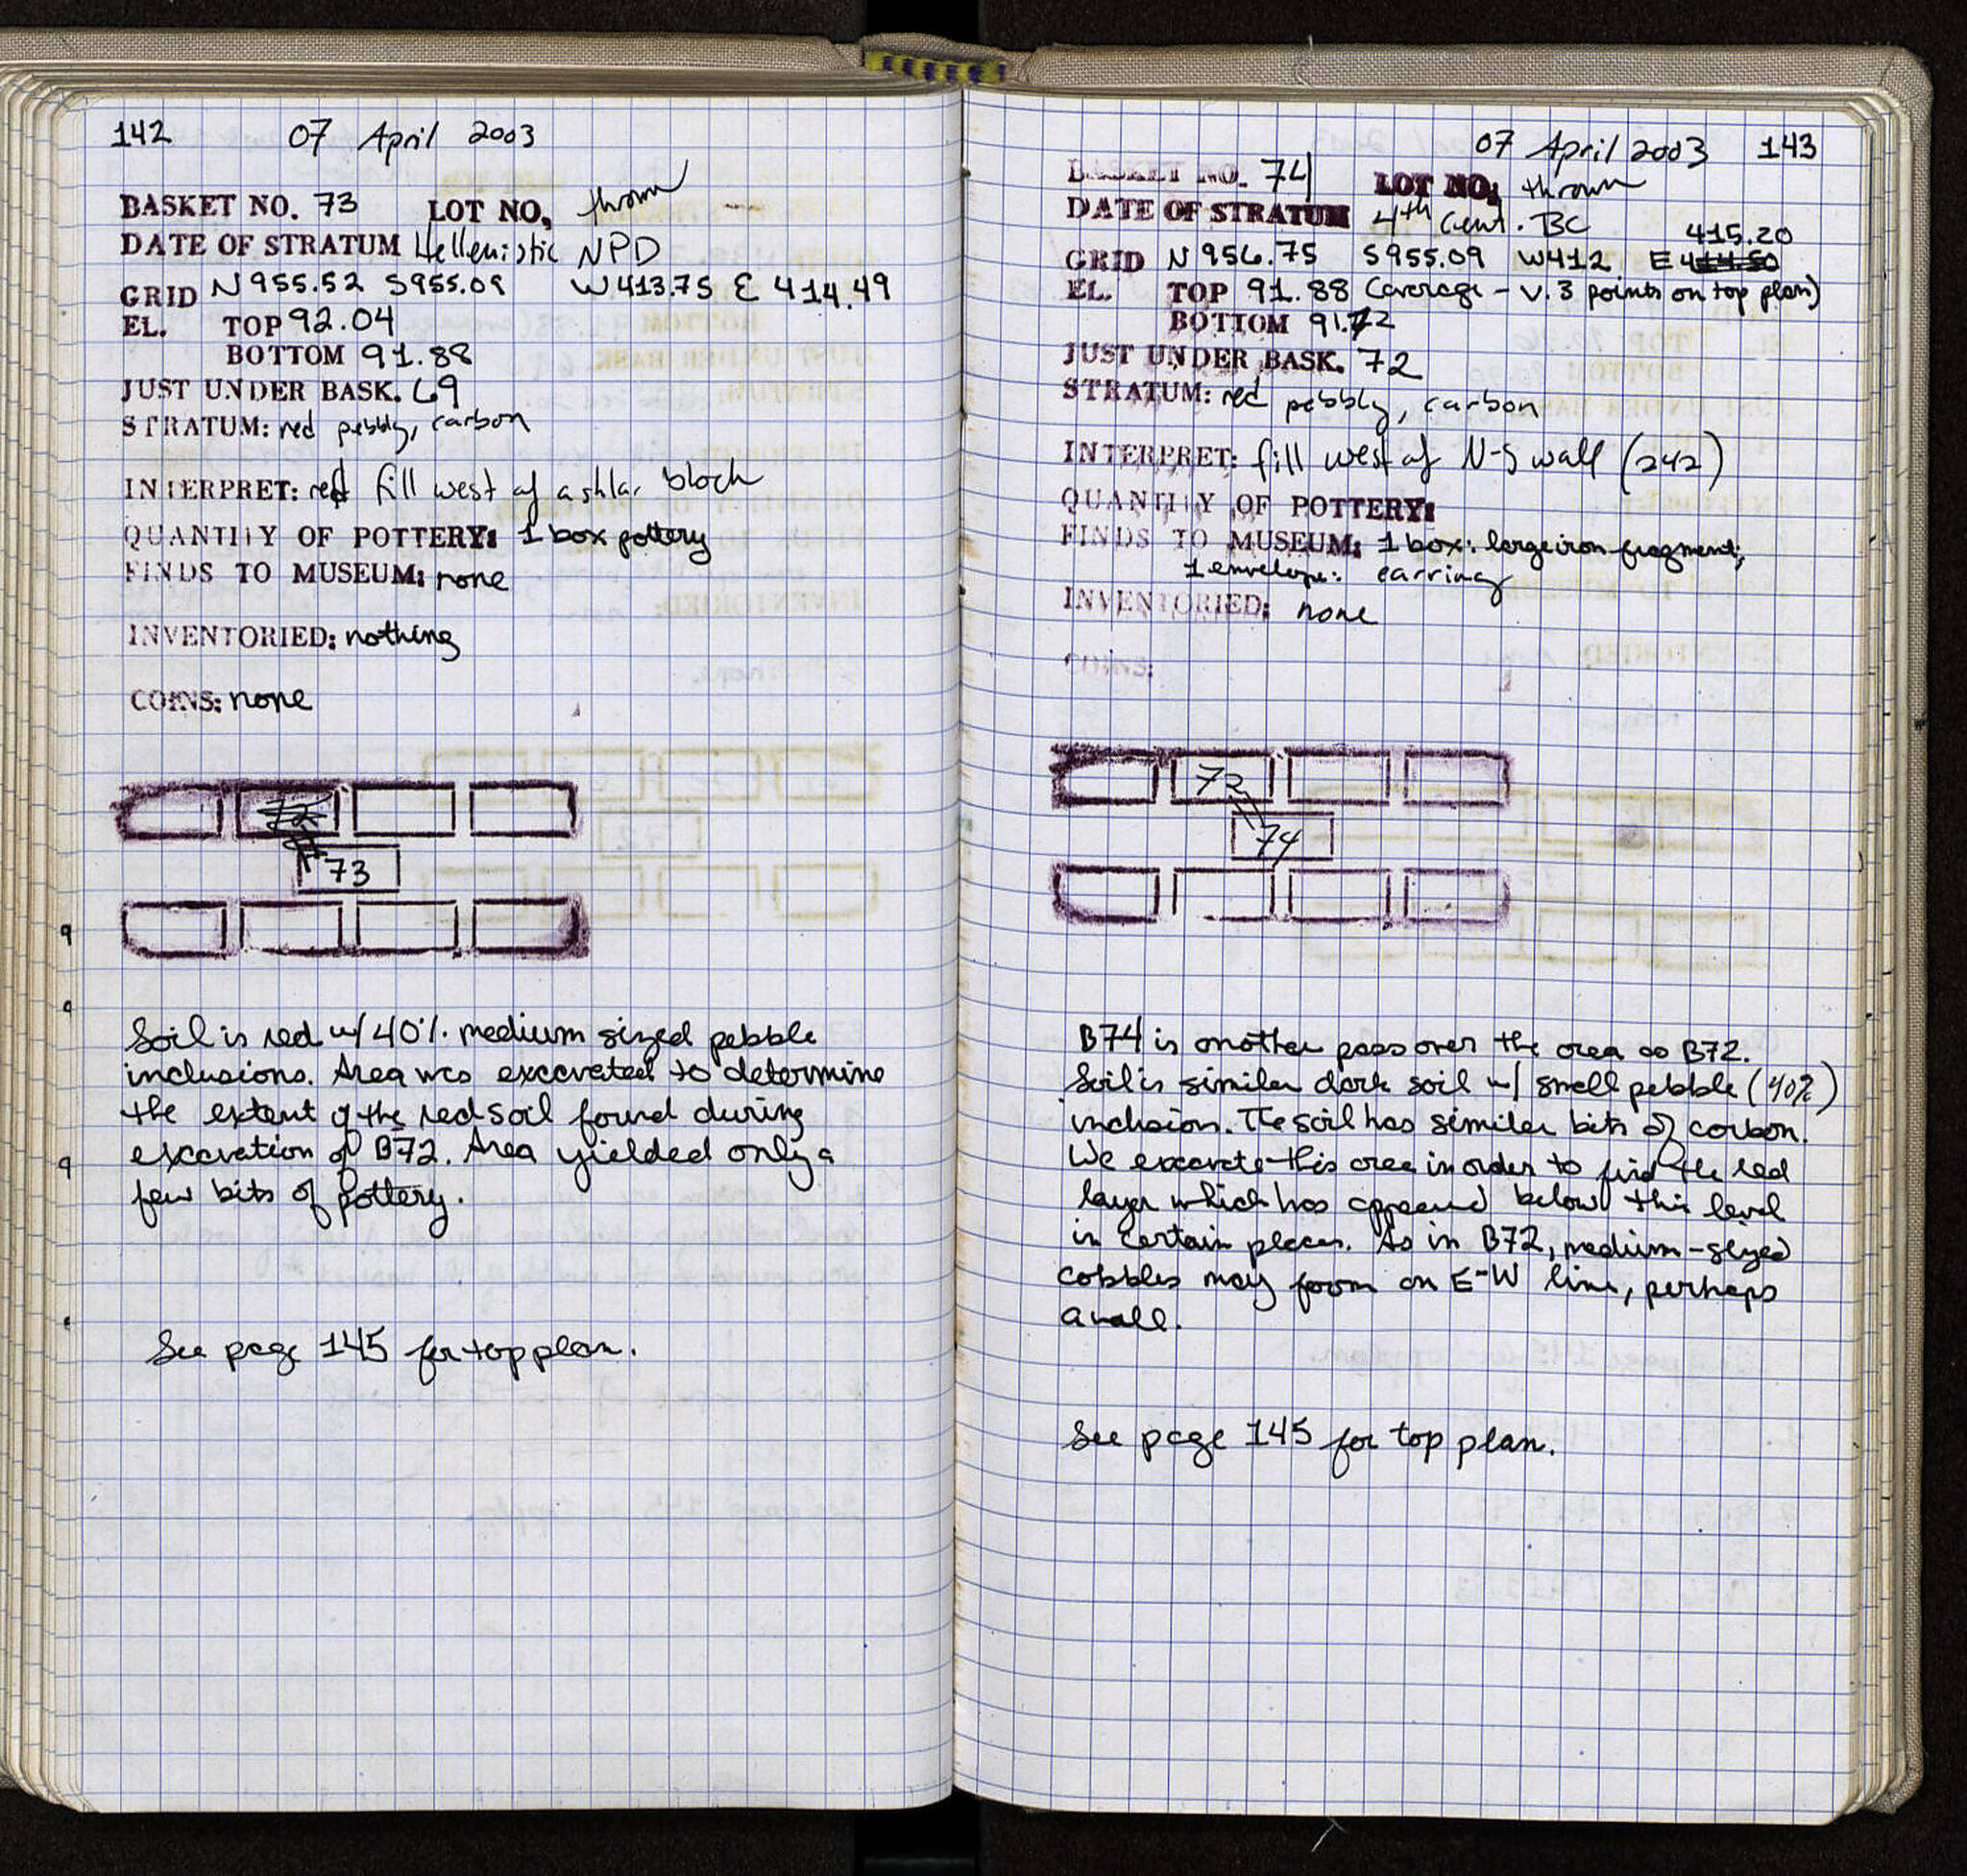 142 07 April 2003
BASKET NO. 73 LOT NO, thrown
DATE OF STRATUM Hellenistic NPD
GRID N955.52 S955.09 W413.75 E 414.49
EL. TOP 92.04
BOTTOM 91.88
JUST UNDER BASK. 69
STRATUM: red pebbly, carbon
INTERPRET: red fill west of ashlar block
QUANTITY OF POTTERY: 1 box pottery
FINDS TO MUSEUM: none
INVENTORIED: nothing
COINS: none
72
73
Soil is red w/ 40% medium sized pebble
inclusions. Area was excavated to determine
the extent of the red soil found during
excavation of B72. Area yielded only a
few bits of pottery.
See page 145 for top plan.
07 April 2003 143
BASKET NO. 74 LOT NO, thrown
DATE OF STRATUM 4th Cent. BC
415.20
GRID N956.75 S955.09 W412 E 414.50
EL. TOP 91.88 (average - v. 3 points on top plan)
BOTTOM 91.72
JUST UNDER BASK. 72
STRATUM: red pebbly, carbon
INTERPRET: fill west of N-S wall (242)
QUANTITY OF POTTERY:
FINDS TO MUSEUM: 1 box: large iron fragment;
1 envelope: earring
INVENTORIED: none
COINS:
72
74
B74 is another pass over the area as B72.
Soil is similar dark soil w/ small pebble (40%)
inclusion. The soil has similar bits of carbon.
We excavate this area in order to find the red
layer which has appeared below this level
in certain places. As in B72, medium-sized
cobbles may form an E-W line, perhaps
a wall.
See page 145 for top plan.